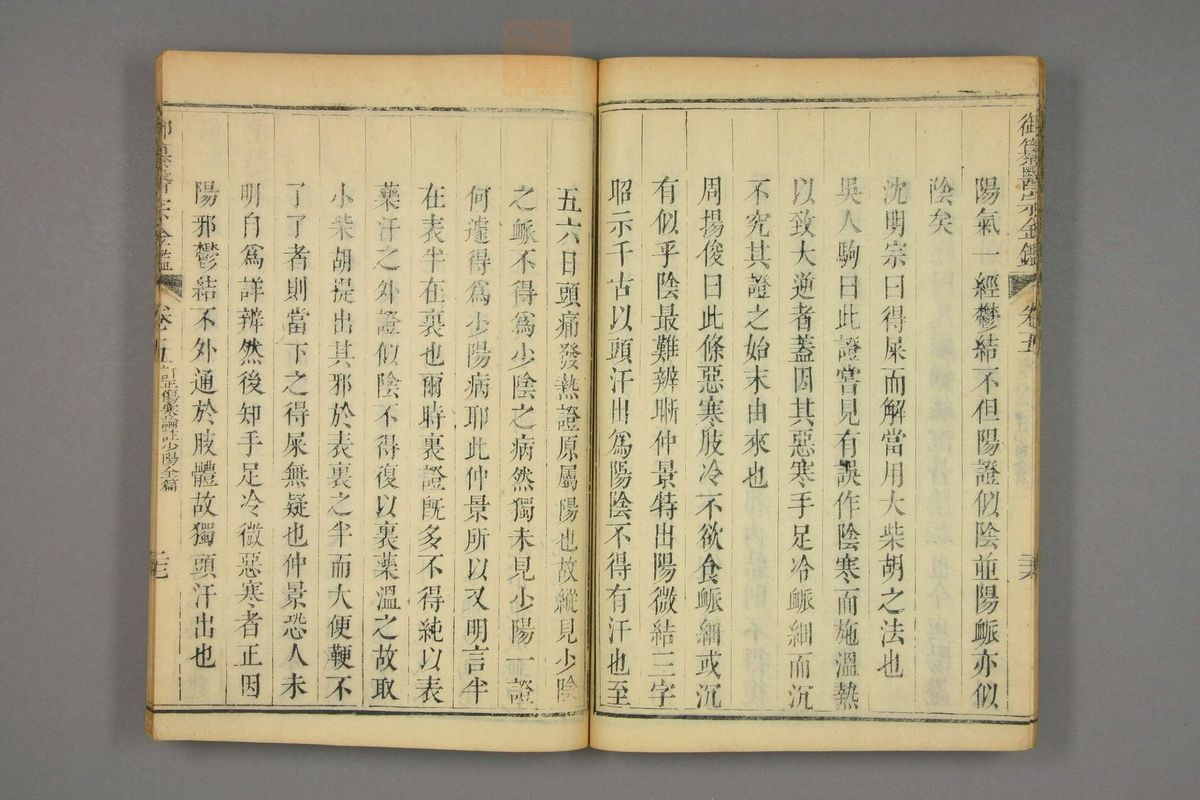 御纂醫宗金鑑 卷五
陽氣一經鬱結不但陽證似陰並陽脈亦似
陰矣
沈明宗曰得屎而解當用大柴胡之法也
吳人駒曰此證嘗見有誤作陰寒而施溫熱
以致大逆者蓋因其惡寒手足冷脈細而沉
不究其證之始末由來也
周揚俊曰此條惡寒肢冷不欲食脈細或沉
有似乎陰最難辨晰仲景特出陽微結三字
昭示千古以頭汗出爲陽陰不得有汗也至
五六日頭痛發熱證原屬陽也故縱見少陰
之脈不得爲少陰之病然獨未見少陽一證
何遽得爲少陽病耶此仲景所以又明言半
在表半在裏也爾時裏證旣多不得純以表
藥汗之外證似陰不得復以裏藥溫之故取
小柴胡提出其邪於表裏之半而大便鞕不
了了者則當下之得屎無疑也仲景恐人未
明白爲詳辨然後知手足冷微惡寒者正因
陽邪鬱結不外通於肢體故獨頭汗出也
御纂醫宗金鑑 卷五 訂正傷寒論註少陽全篇